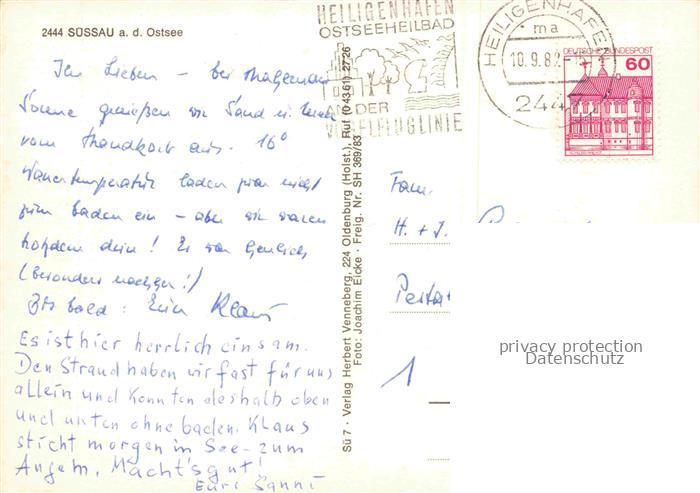 2444 SÜSSAU a. d. Ostsee
HEILIGENHAFEN
OSTSEEHEILBAD
AN DER
VOGELFLUGLINIE
HEILIGENHAFEN
ma
10.9.82
244
DEUTSCHE BUNDESPOST
60
Ihr Lieben – bei
Sonne genießen wir Sand u.
vom Strandkorb aus. 16°
Wassertemperatur laden zwar nicht
zum baden ein – aber wir waren
trotzdem drin! Es war herrlich
(besonders nachher!)
Bis bald: Euer Klaus
Es ist hier herrlich einsam.
Den Strand haben wir fast für uns
allein und konnten deshalb oben
und unten ohne baden. Klaus
sticht morgen in See – zum
Angeln. Macht's gut!
Eure Sanni
Sü 7 · Verlag Herbert Venneberg, 224 Oldenburg (Holst.), Ruf (0 43 61) 27 26
Foto: Joachim Eicke · Freig. Nr. SH 369/83
Fam.
H. + J.
1
privacy protection
Datenschutz